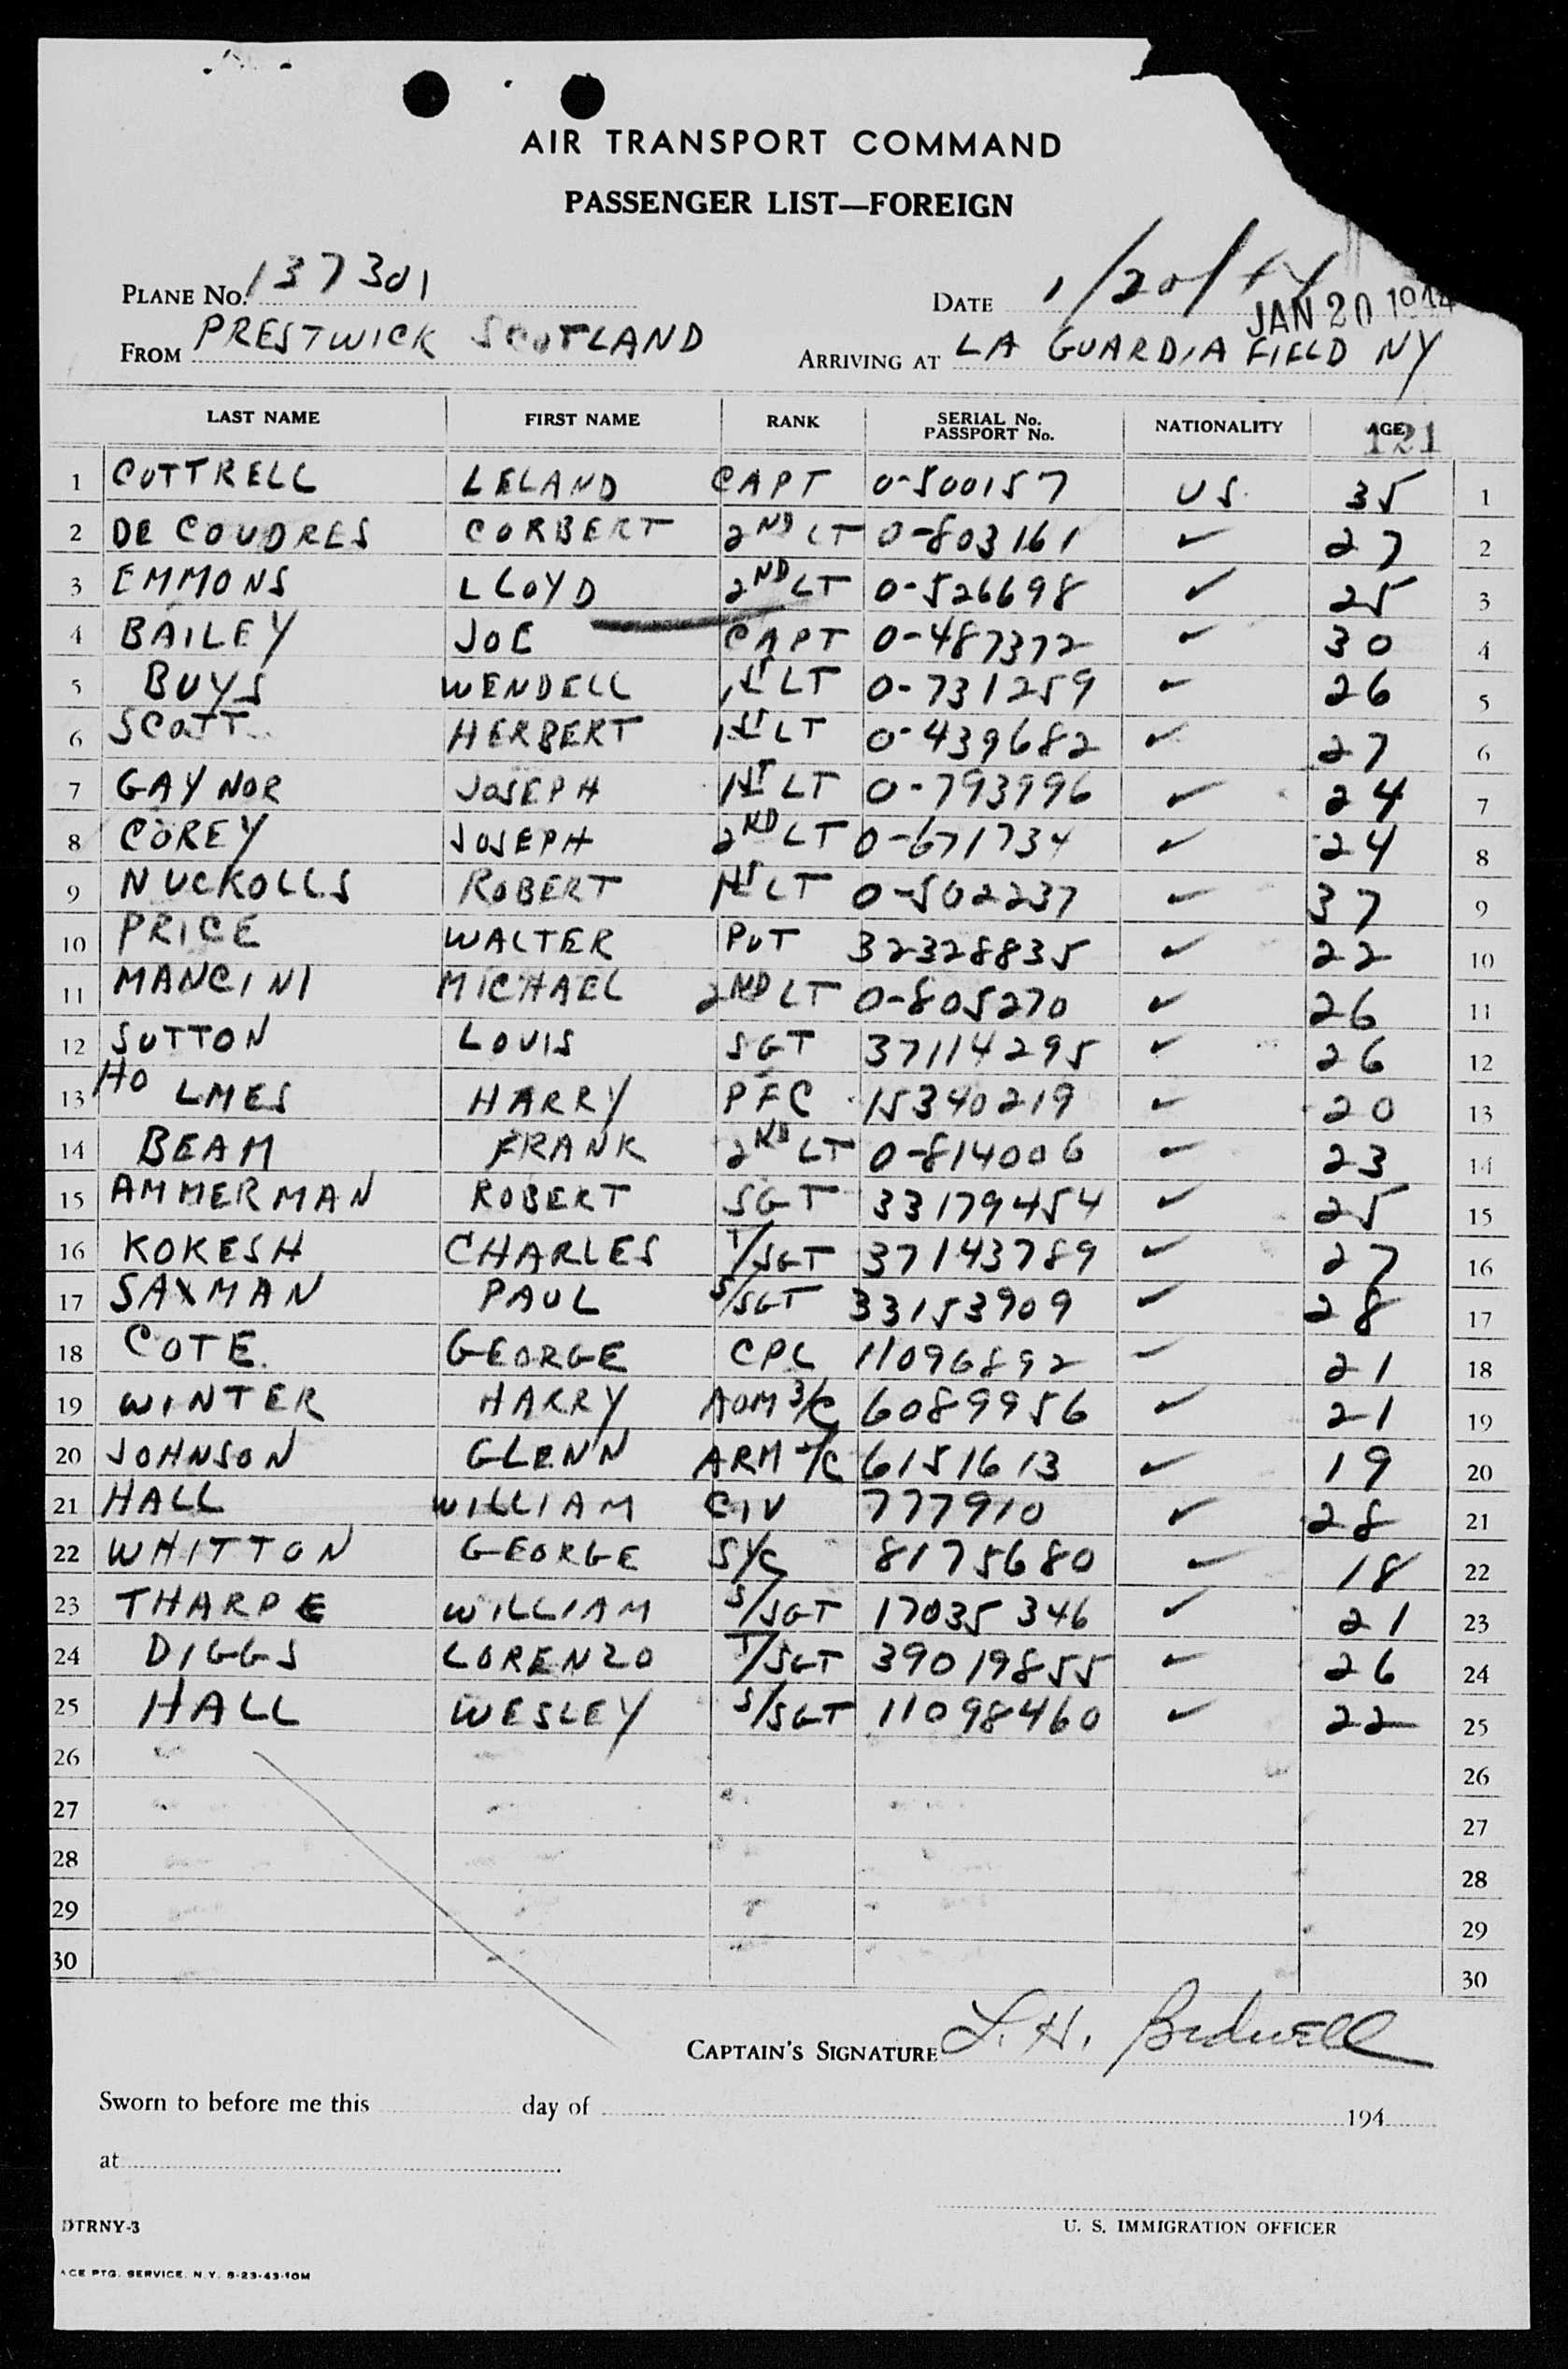 AIR TRANSPORT COMMAND
PASSENGER LIST—FOREIGN
PLANE No. 137301 DATE 1/20/44
JAN 20 1944
FROM PRESTWICK SCOTLAND ARRIVING AT LA GUARDIA FIELD NY
LAST NAME FIRST NAME RANK SERIAL No. PASSPORT No. NATIONALITY AGE
121
1 COTTRELL LELAND CAPT 0-500157 US 35 1
2 DE COUDRES CORBERT 2ND LT 0-803161 ✓ 27 2
3 EMMONS LLOYD 2ND LT 0-526698 ✓ 25 3
4 BAILEY JOE CAPT 0-487372 ✓ 30 4
5 BUYS WENDELL 1ST LT 0-731259 ✓ 26 5
6 SCOTT HERBERT 1ST LT 0-439682 ✓ 27 6
7 GAYNOR JOSEPH 1ST LT 0-793996 ✓ 24 7
8 COREY JOSEPH 2ND LT 0-671734 ✓ 24 8
9 NUCKOLLS ROBERT 1ST LT 0-502237 ✓ 37 9
10 PRICE WALTER PVT 32328835 ✓ 22 10
11 MANCINI MICHAEL 2ND LT 0-805270 ✓ 26 11
12 SUTTON LOUIS SGT 37114295 ✓ 26 12
13 HOLMES HARRY PFC 15340219 ✓ 20 13
14 BEAM FRANK 2ND LT 0-814006 ✓ 23 14
15 AMMERMAN ROBERT SGT 33179454 ✓ 25 15
16 KOKESH CHARLES T/SGT 37143789 ✓ 27 16
17 SAXMAN PAUL S/SGT 33153909 ✓ 28 17
18 COTE GEORGE CPL 11096892 ✓ 21 18
19 WINTER HARRY AOM 3/C 6089956 ✓ 21 19
20 JOHNSON GLENN ARM /C 6151613 ✓ 19 20
21 HALL WILLIAM CIV 777910 ✓ 28 21
22 WHITTON GEORGE S1/C 8175680 ✓ 18 22
23 THARPE WILLIAM S/SGT 17035346 ✓ 21 23
24 DIGGS LORENZO T/SGT 39019855 ✓ 26 24
25 HALL WESLEY S/SGT 11098460 ✓ 22 25
26 26
27 27
28 28
29 29
30 30
CAPTAIN'S SIGNATURE L. H. Bidwell
Sworn to before me this day of 194
at
DTRNY-3 U. S. IMMIGRATION OFFICER
ACE PTG. SERVICE. N.Y. 8-23-43-10M